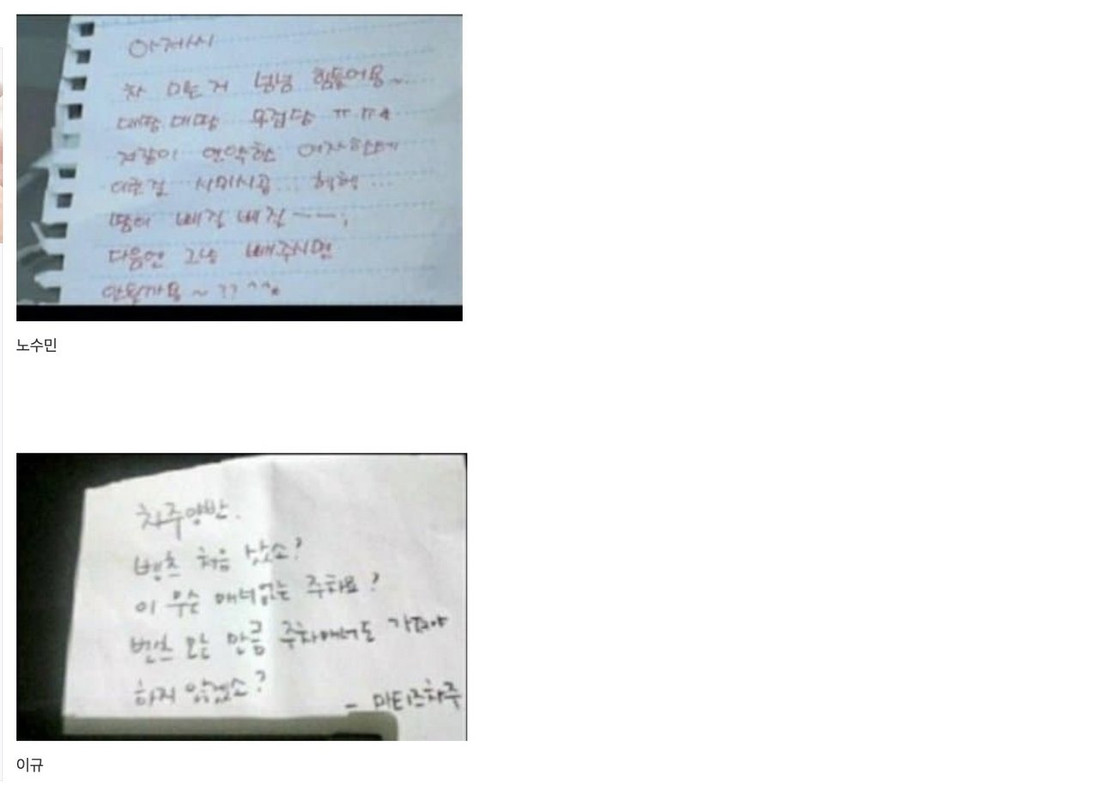 아저씨
차 미는거 넘넘 힘들어용~...
대땅 대땅 무겁당 ㅠ.ㅠ
저같이 연약한 여자한테
이른걸 시미시공... 헥헥...
땀이 삐질삐질~~;
다음엔 그냥 빼주시면
안될까용~?? ^^*
노수민
차주양반.
벤츠 처음 샀소?
이 무슨 매너없는 주차요?
벤츠 모는 만큼 주차매너도 가져야
하지 않겠소?
- 마티즈차주
이규